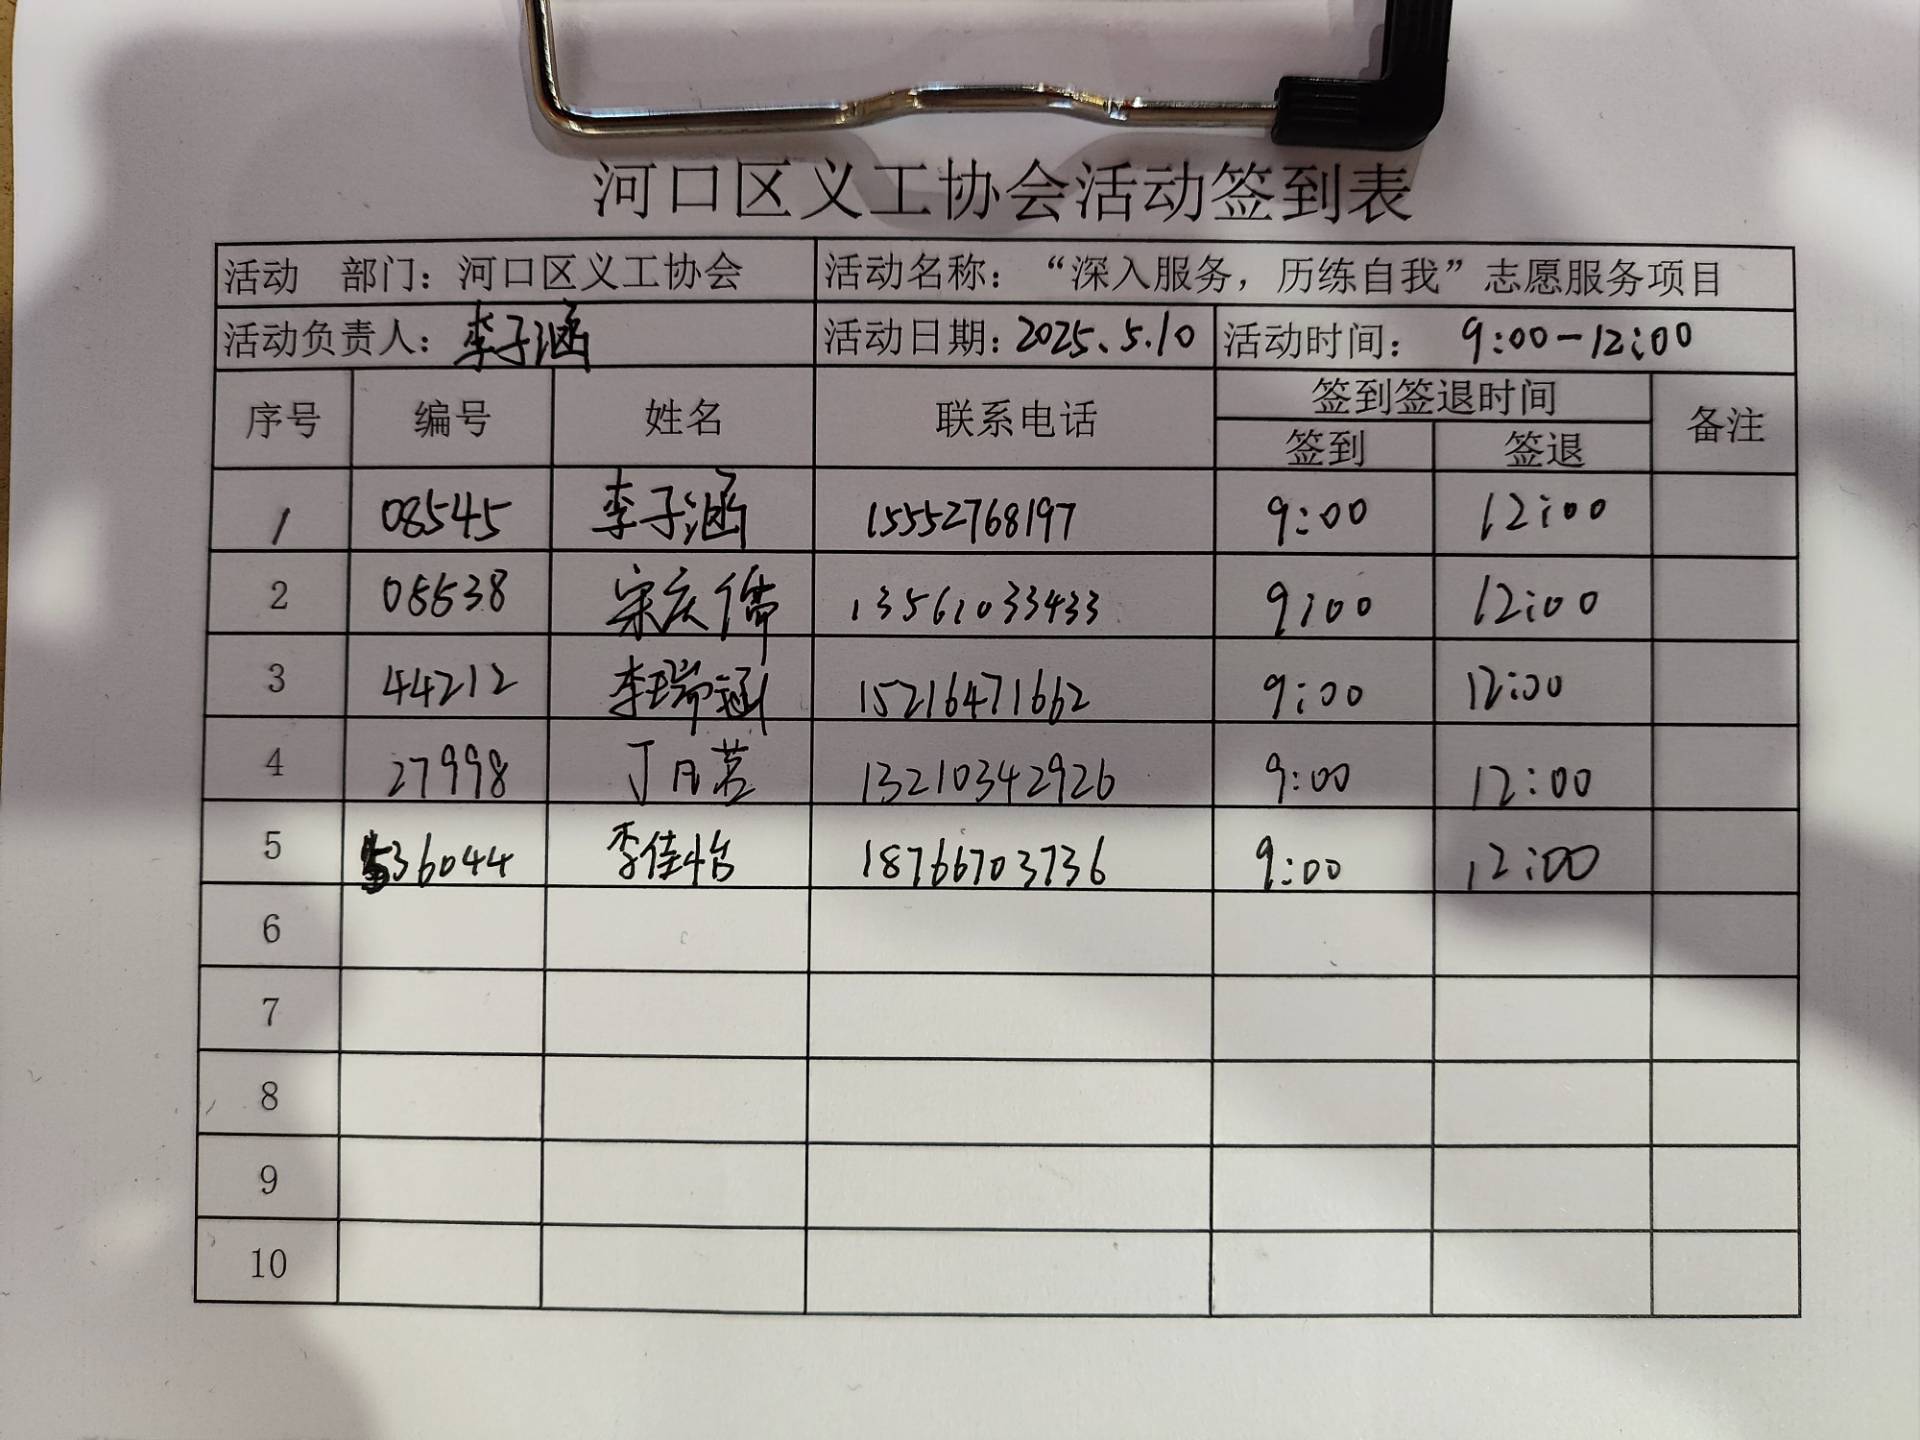 河口区义工协会活动签到表
活动 部门：河口区义工协会 活动名称：“深入服务，历练自我”志愿服务项目
活动负责人：李子涵 活动日期：2025.5.10 活动时间： 9:00-12:00
序号 编号 姓名 联系电话 签到签退时间 备注
签到 签退
1 08545 李子涵 15552768197 9:00 12:00
2 08538 宋庆儒 13561033433 9:00 12:00
3 44212 李瑞涵 15216471662 9:00 12:00
4 27998 丁凡茗 13210342926 9:00 12:00
5 36044 李佳怡 18766703736 9:00 12:00
6
7
8
9
10